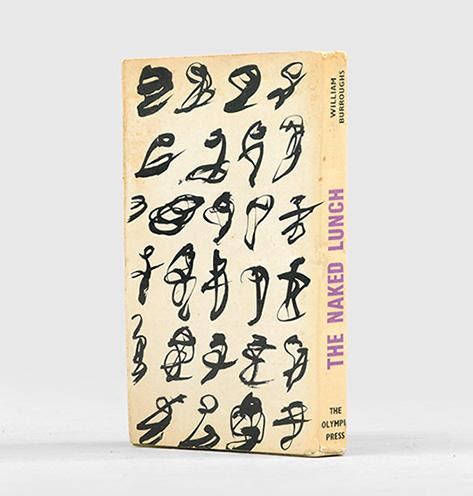 WILLIAM
BURROUGHS
THE NAKED LUNCH
THE
OLYMPIA
PRESS